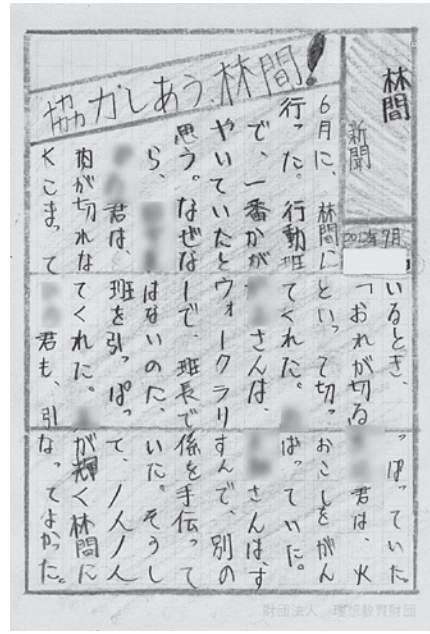 林間
新聞
2012年7月
協力しあう林間!
6月に、林間に
行った。行動班
で、一番かが
やいていたと
思う。なぜな
ら、
君は、
肉が切れな
くこまって
いるとき、
「おれが切る
といって切っ
てくれた。
さんは、
ウォークラリ
ーで、班長で
はないのに、
班を引っぱっ
てくれた。
君も、引
っぱっていた。
君は、火
おこしをがん
ばっていた。
さんは、す
すんで、別の
係を手伝って
いた。そうし
て、1人1人
が輝く林間に
なってよかった。
財団法人 理想教育財団